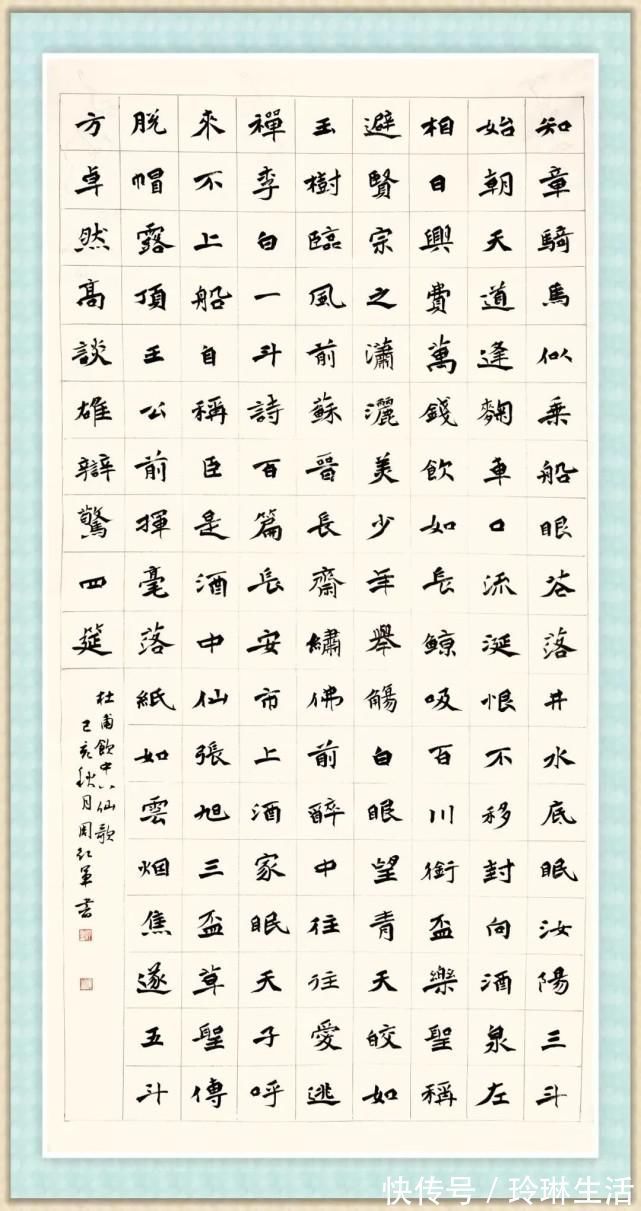 知章騎馬似乘船眼花落井水底眠汝陽三斗
始朝天道逢麴車口流涎恨不移封向酒泉左
相日興費萬錢飲如長鯨吸百川銜盃樂聖稱
避賢宗之瀟灑美少年舉觴白眼望青天皎如
玉樹臨風前蘇晉長齋繡佛前醉中往往愛逃
禪李白一斗詩百篇長安市上酒家眠天子呼
來不上船自稱臣是酒中仙張旭三盃草聖傳
脫帽露頂王公前揮毫落紙如雲烟焦遂五斗
方卓然高談雄辯驚四筵
杜甫飲中八仙歌
己亥秋月周红軍書
快传号 / 玲琳生活